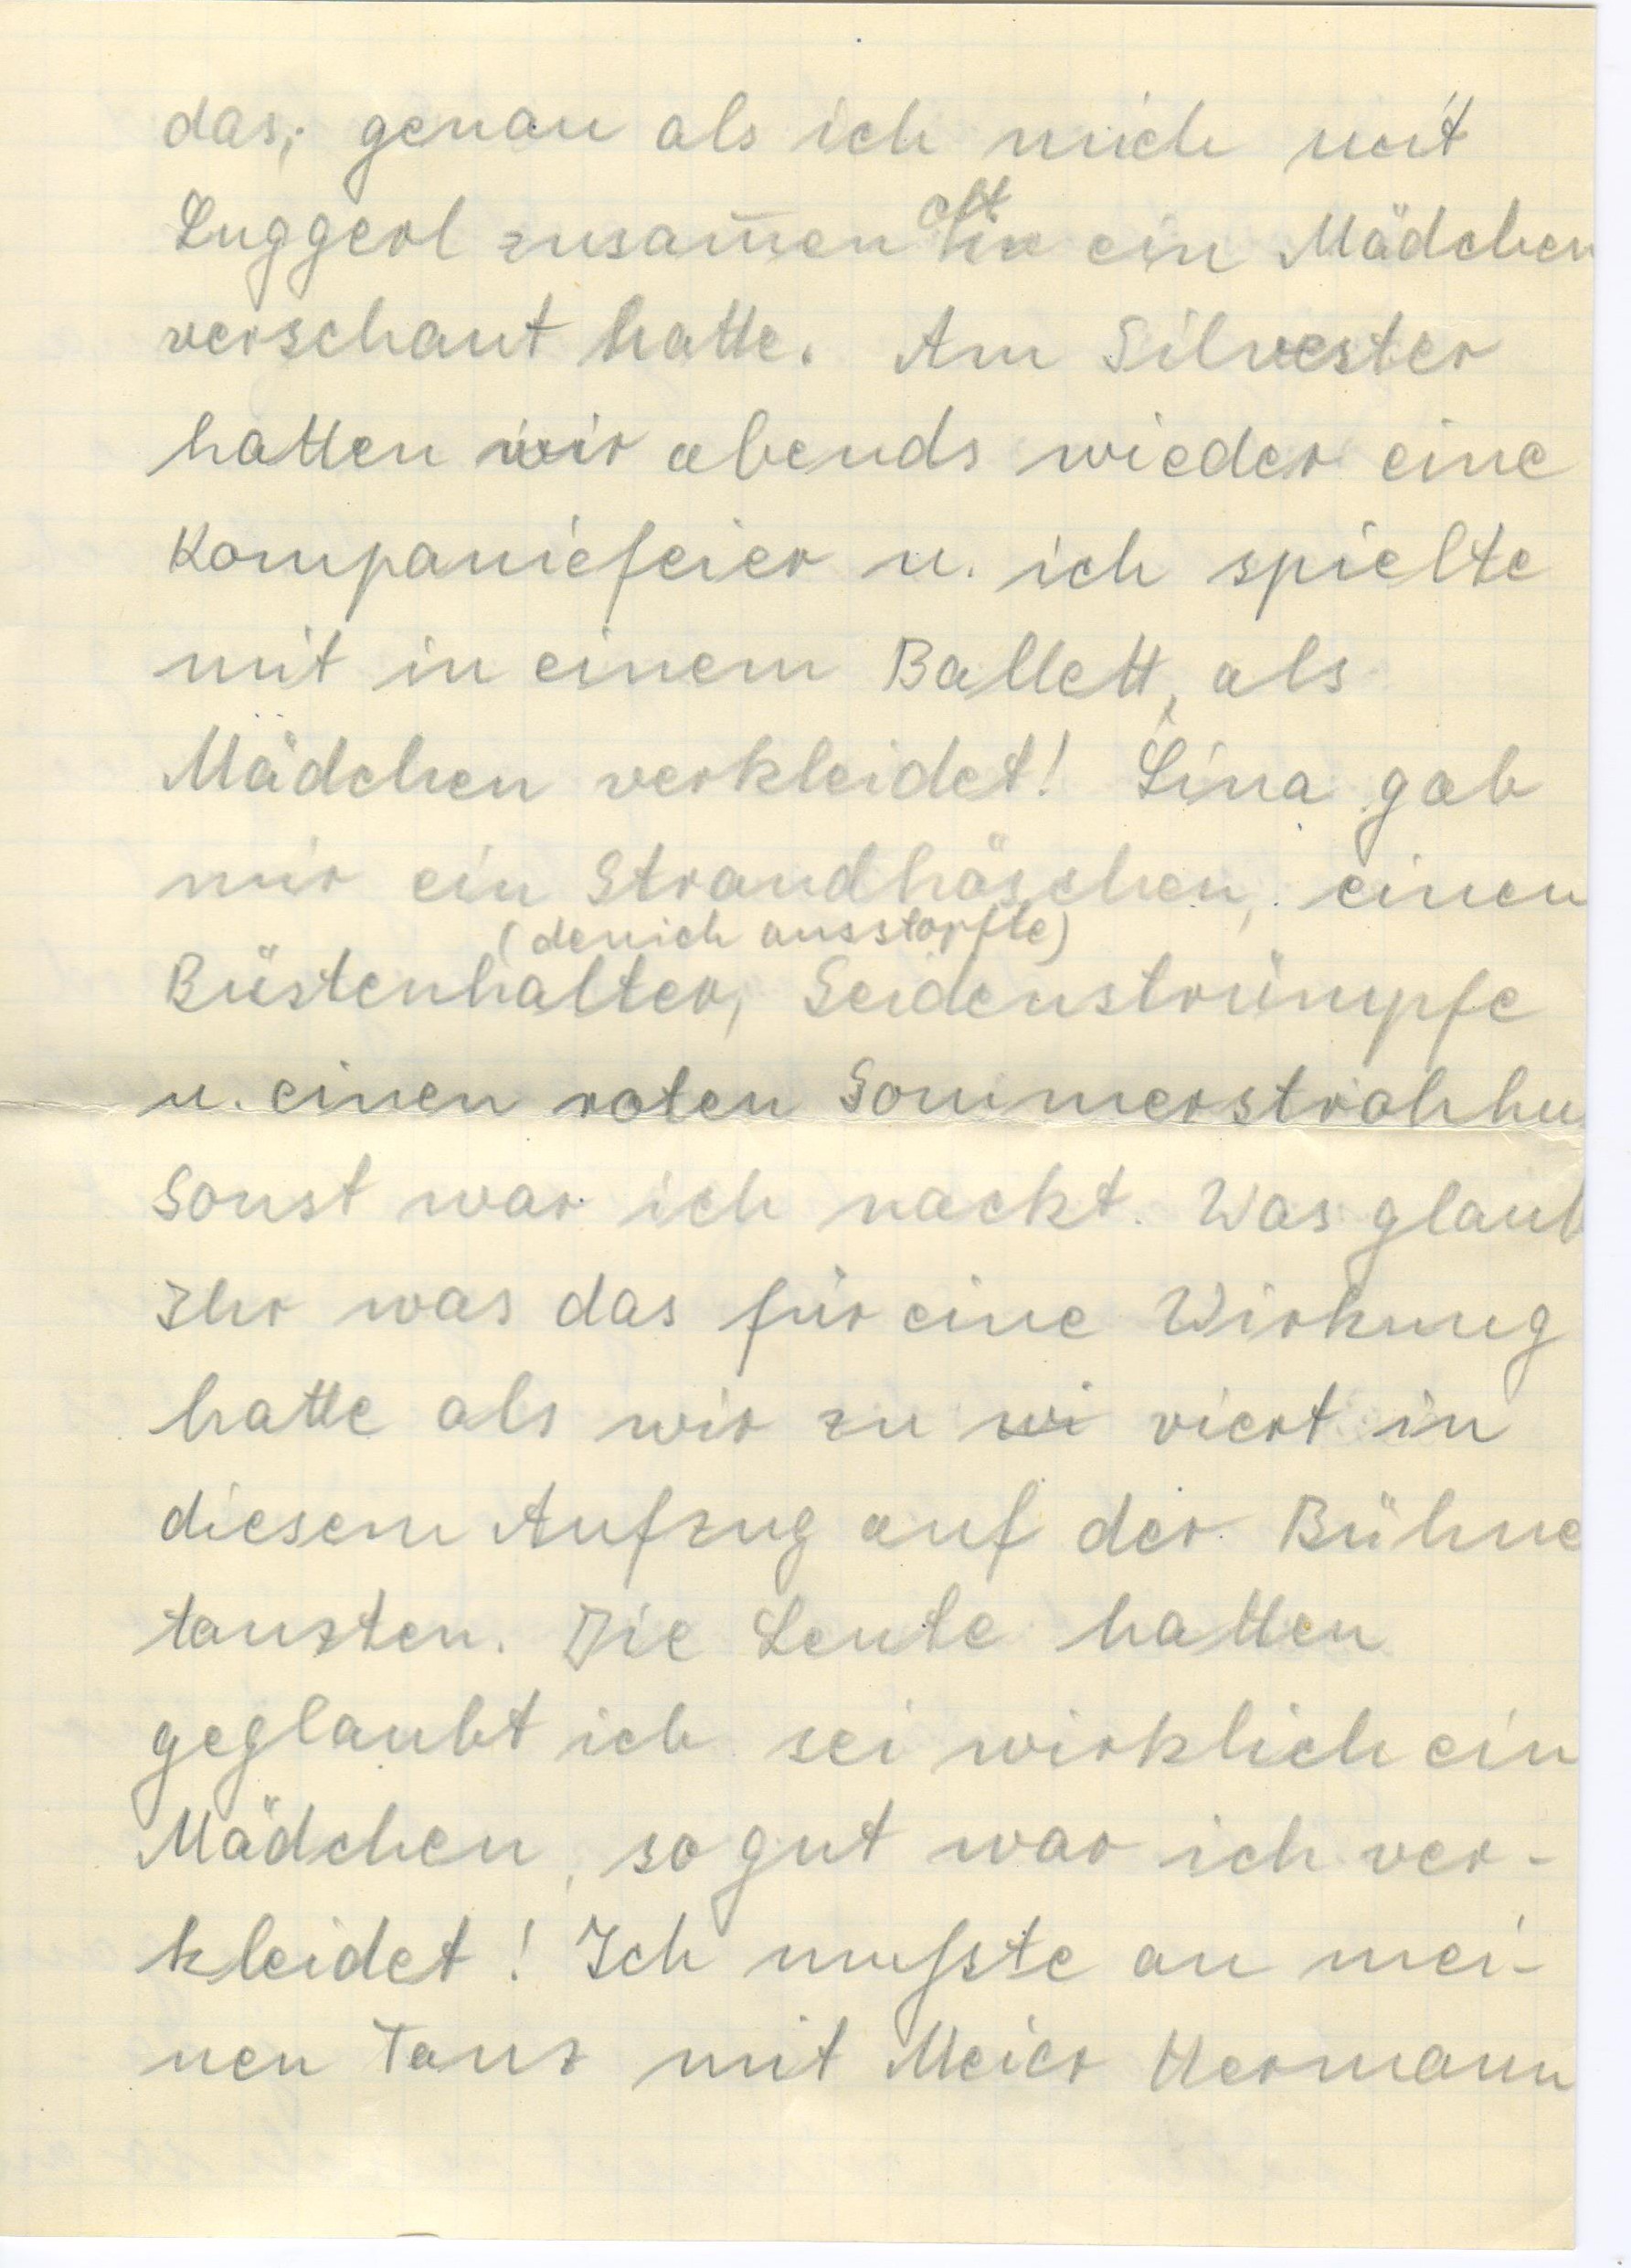 das, genau als ich mich mit
oft
Luggerl zusam̅en in ein Mädchen
verschaut hatte. Am Silvester
hatten wir abends wieder eine
Kompaniefeier u. ich spielte
mit in einem Ballett, als
Mädchen verkleidet! Lina gab
mir ein Strandhöschen, einen
(den ich ausstopfte)
Büstenhalter, Seidenstrümpfe
u. einen roten Sommerstrohhu
Sonst war ich nackt. Was glaub
Ihr was das für eine Wirkung
hatte als wir zu wi viert in
diesem Aufzug auf der Bühne
tanzten. Die Leute hatten
geglaubt ich sei wirklich ein
Mädchen, so gut war ich ver-
kleidet! Ich mußste an mei-
nen Tanz mit Meier Hermann